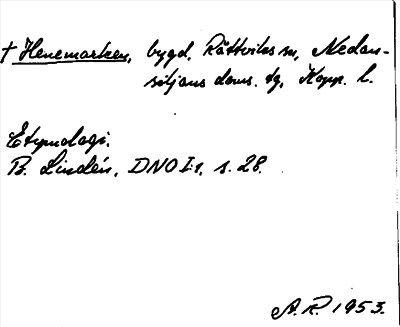 † Henemarken, bygd, Rättviks sn, Nedan-
siljans doms. tg, Kopp. l.
Etymologi.
B. Lindén, DNO I:1, s. 28.
A.R. 1953.